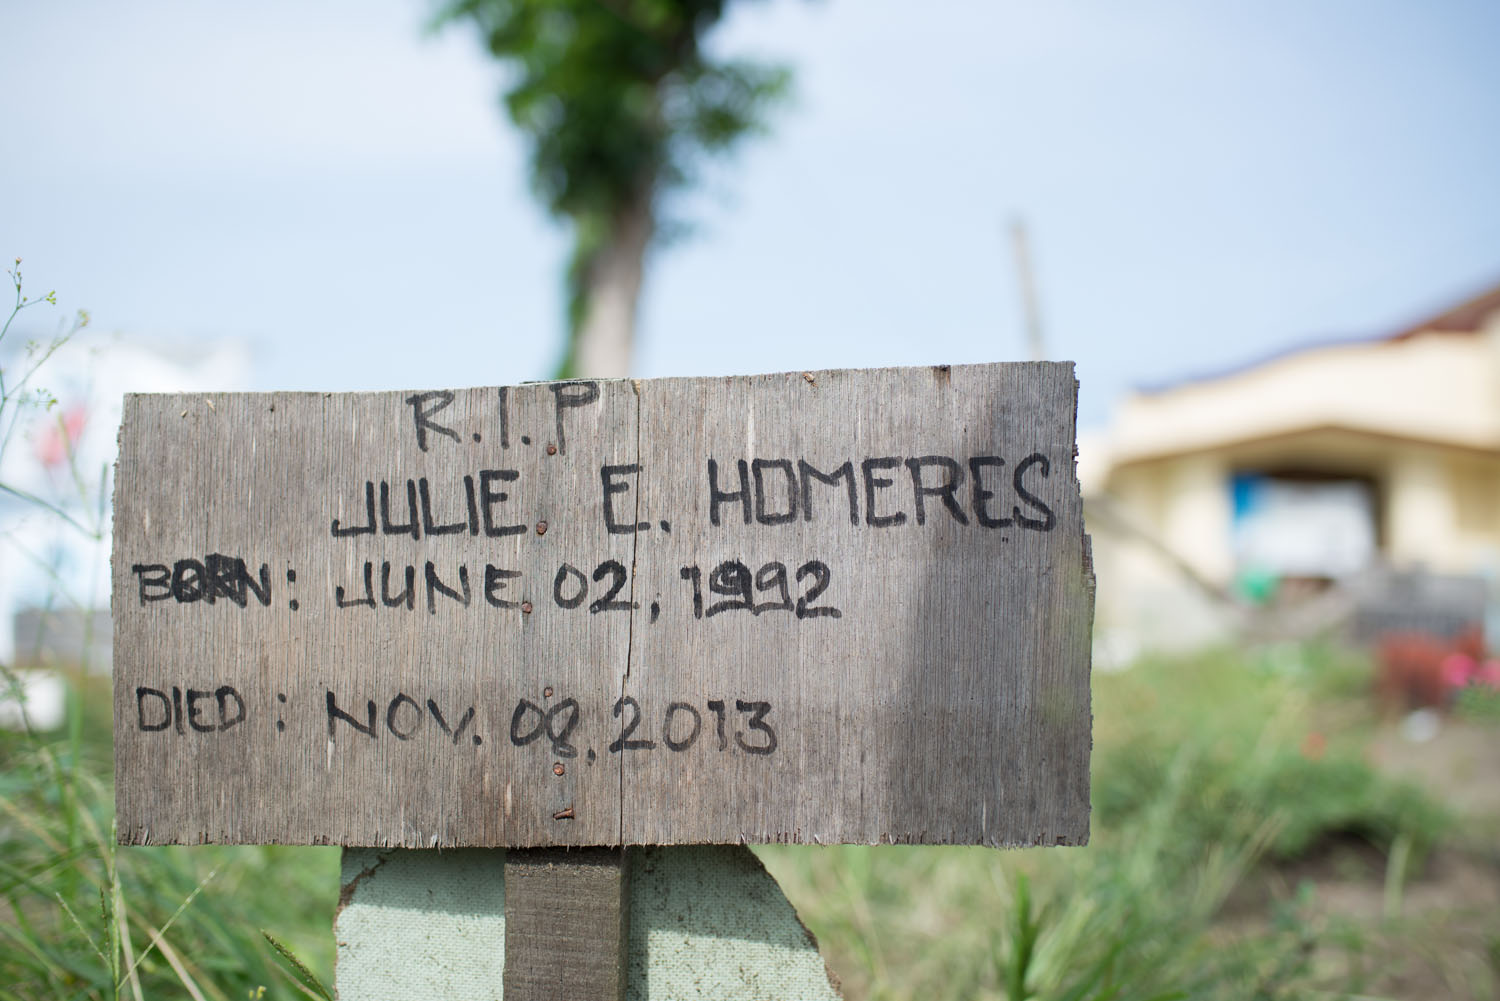 R.I.P
JULIE E. HOMERES
BORN: JUNE 02, 1992
DIED: NOV. 08, 2013